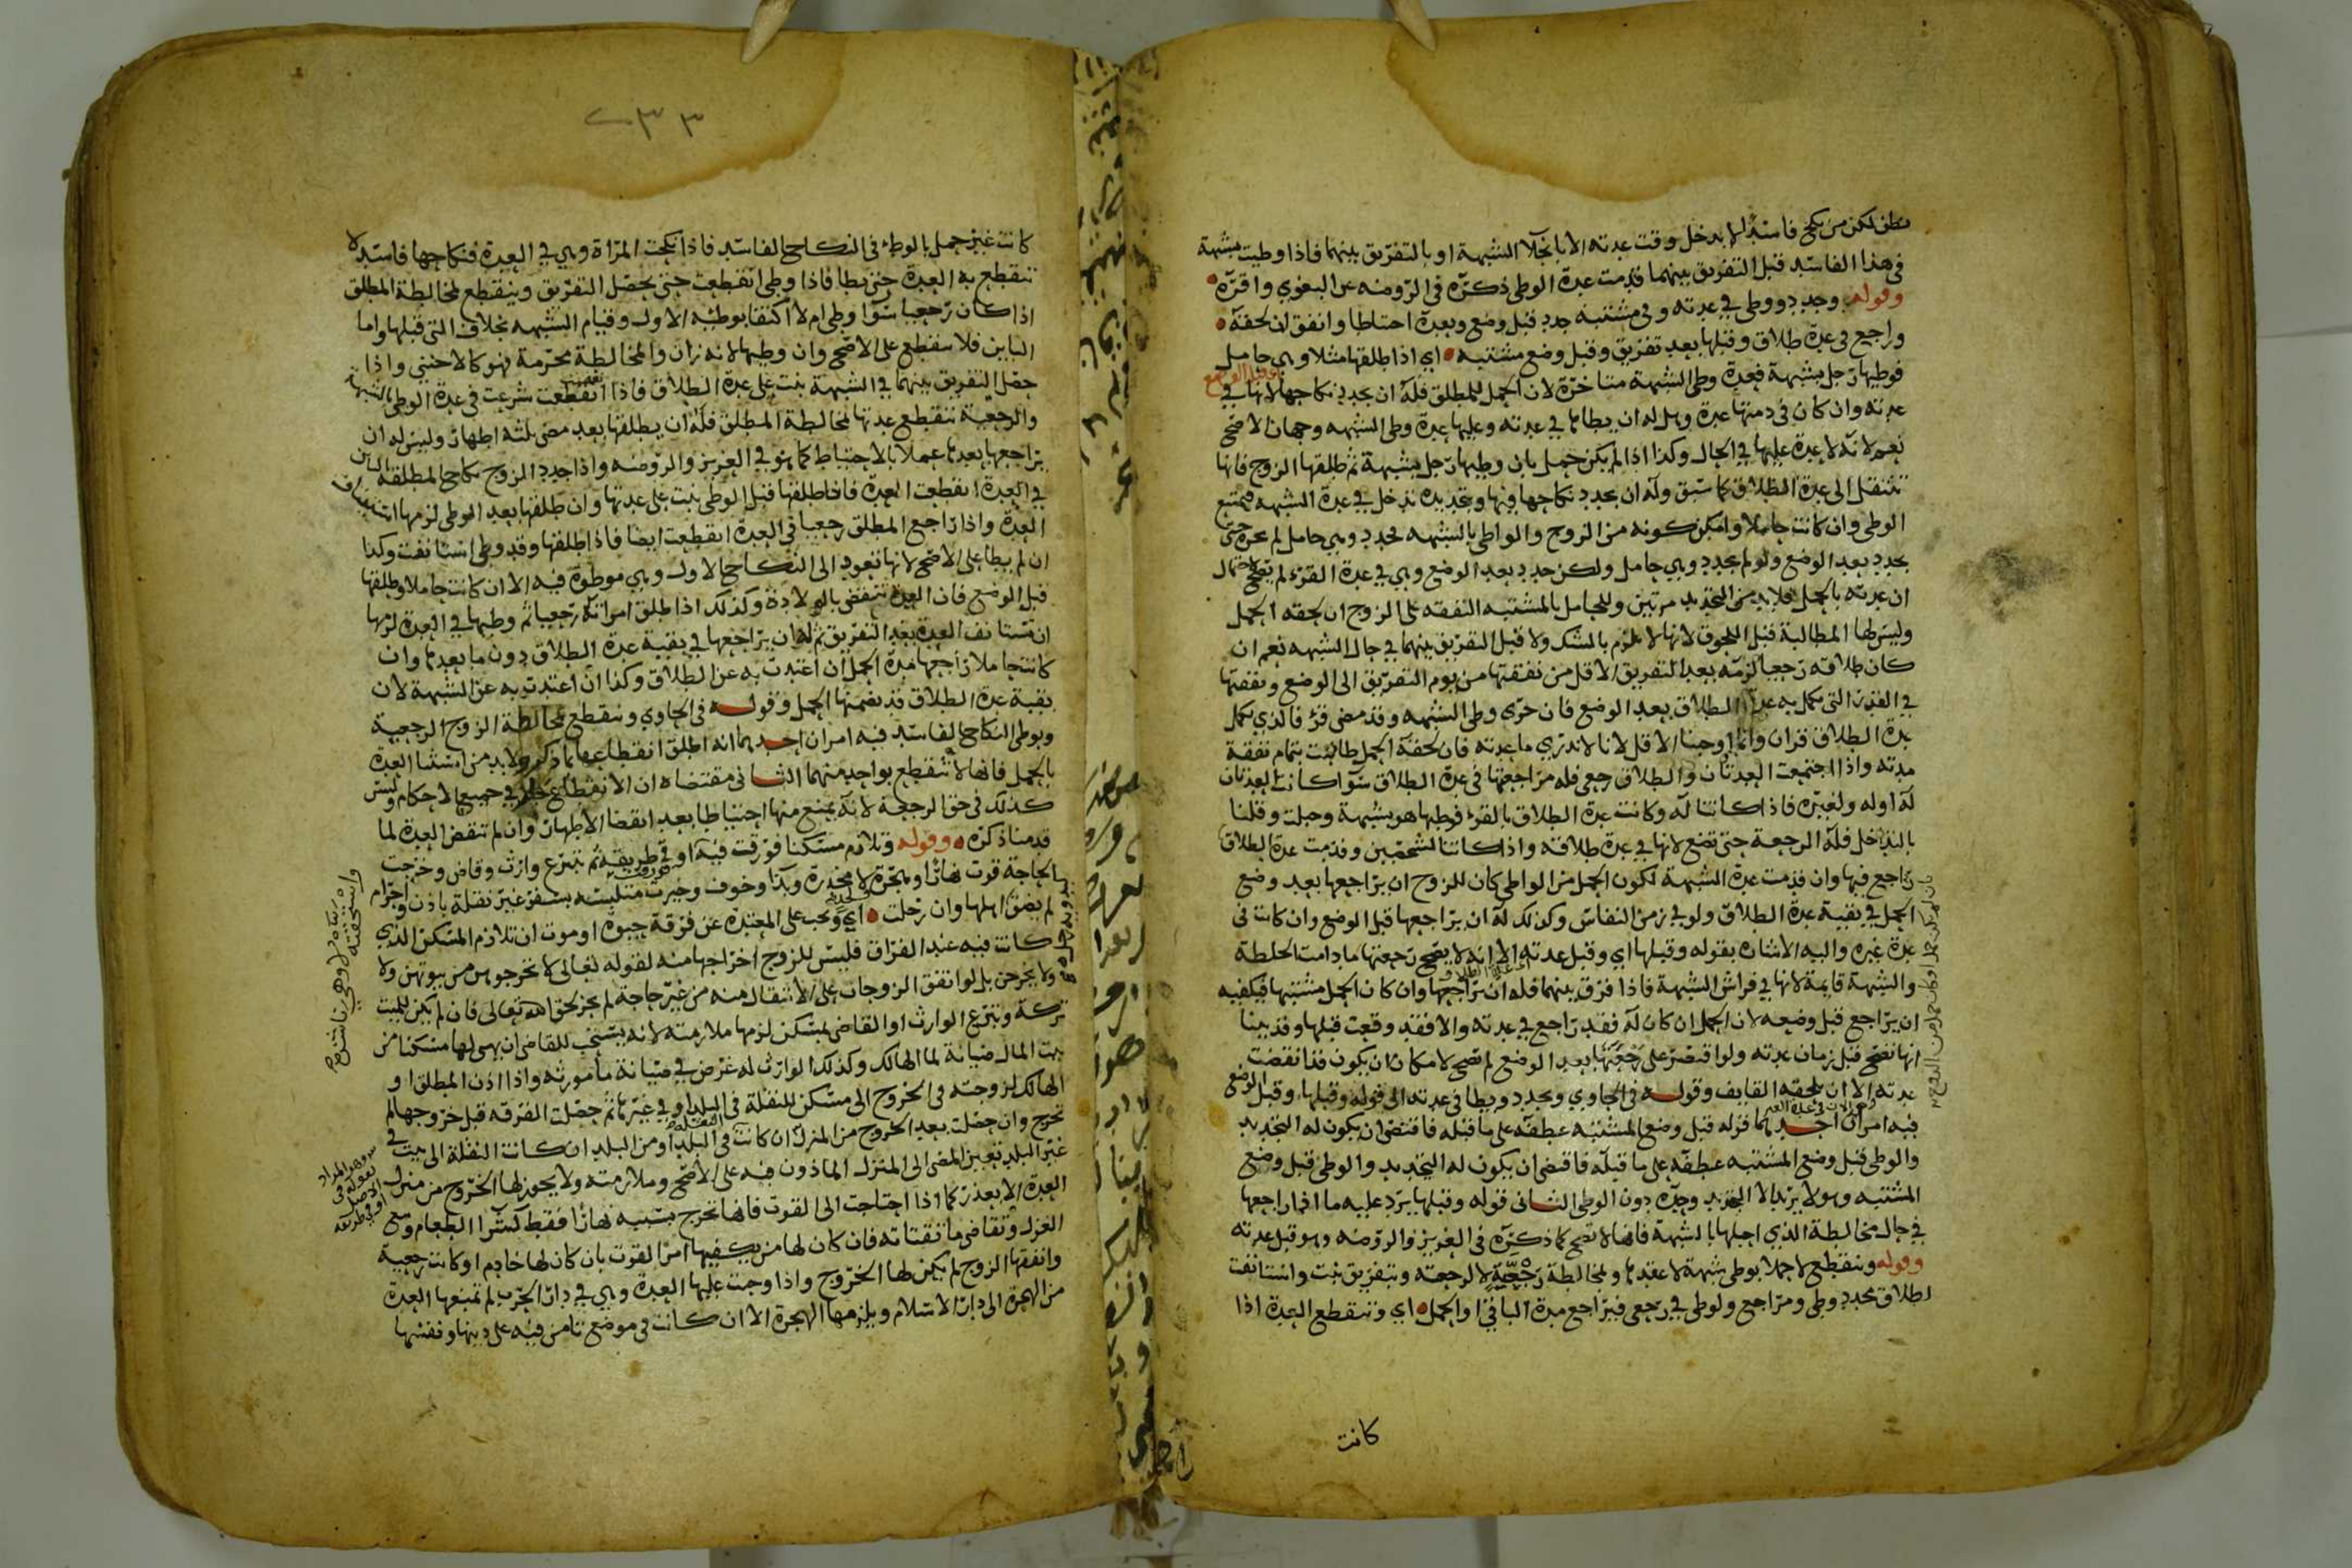 في هذا الفاسد قبل التفريق بينهما قدمت عدة الوطي ذكره في الروضه عن البغوي واقره
وقوله وجدد ووطي في عدته وفي مشتبه جدد قبل وضع وبعده احتياطا وانفق ان لحقه
وراجع في عدة طلاق وقبلها بعد تفريق وقبل وضع مشتبه اي اذا طلقها مثلا وهي حامل
فوطيها رجل بشبهة فعدة وطي الشبهة متاخرة لان الحمل للمطلق فله ان يجدد نكاحها لانها في
عدته وان كان في ذمتها عدة وهل له ان يطاها في عدته وعليها عدة وطي الشبهه وجهان الاصح
نعم لانه لا عدة عليها في الحال وكذا اذا لم يكن حمل بان وطيها رجل بشبهة ثم طلقها الزوج فانها
تنتقل الى عدة الطلاق كما سبق وله ان يجدد نكاحها فيها وتجديده ندخل في عدة الشبهه فيمتنع
الوطي وان كانت حاملا وامكن كونه من الزوج والواطي بالشبهه فجدد وهي حامل لم
يجدد بعد الوضع ولو لم يجدد وهي حامل ولكن جدد بعد الوضع وهي في عدة القرء لم يصح لاحتمال
ان عدته بالحمل فلا بد من التجديد مرتين وللحامل بالمشتبه النفقه على الزوج ان لحقه الحمل
وليس لها المطالبة قبل اللحوق لانها لا تلزم بالشك ولا قبل التفريق بينهما في حال الشبهه نعم ان
كان طلاقه رجعيا لزمه بعد التفريق الاقل من نفقتها من يوم التفريق الى الوضع ونفقتها
في القدر التي تكمل به عدة الطلاق بعد الوضع فان جرى وطي الشبهه وقد مضى قرء فالذي تكمل
عدة الطلاق قران وانما اوجبنا الاقل لانا لا ندري ما عدته فان لحقه الحمل طالبت بتمام نفقة
مدته واذا اجتمعت العدتان والطلاق رجعي فله مراجعتها في عدة الطلاق سوا كانت العدتان
له او له ولغيره فاذا كانتا له وكانت عدة الطلاق بالقرء فوطيها هو بشبهة وحبلت وقلنا
بالتداخل فله الرجعة حتى تضع لانها في عدة طلاقه واذا كانتا لشخصين وقدمت عدة الطلاق
راجع فيها وان قدمت عدة الشبهة لكون الحمل من الواطي كان للزوج ان يراجعها بعد وضع
الحمل في بقية عدة الطلاق ولو في زمن النفاس وكذلك له ان يراجعها قبل الوضع وان كانت في
عدة غيره واليه الاشاره بقوله وقبلها اي وقبل عدته الا انه لا يصح رجعتها ما دامت الخلطة
والشبهة قايمة لانها في فراش الشبهة فاذا فرق بينهما فله ان يراجعها وان كان الحمل مشتبها فيكفيه
ان يراجع قبل وضعه لان الحمل ان كان له فقد راجع في عدته والا فقد وقعت قبلها وقد بينا
انها تصح قبل زمان عدته ولو اقتصر على رجعتها بعد الوضع لم تصح لامكان ان يكون قد انقضت
عدته الا ان يلحقه القايف وقوله في الحاوي ويجدد ويطا في عدته الى قوله وقبلها وقبل الوضع
فيه امران احدهما قوله قبل وضع المشتبه عطفه على ما قبله فاقتضى ان يكون له التجديد
والوطي قبل وضع المشتبه عطفه على ما قبله فاقتضى ان يكون له التجديد والوطي قبل وضع
المشتبه وهو لا يريد الا التجديد وحده دون الوطي الثاني قوله وقبلها يرد عليه ما اذا راجعها
في حال مخالطة الذي احبلها بالشبهة فانها لا تصح كما ذكره في العزيز والروضه وهو قبل عدته
وقوله وتنقطع لا حملا بوطي شبهة لا عقد بها ولمخالطة رجعية لا لرجعته وبتفريق بنت واستانفت
لطلاق مجدد وطي ومراجع ولوطي في رجعي فيراجع مدة الباقي او الحمل اي وتنقطع العدة اذا
كانت
٢٣٣
كانت غير حمل بالوطء في النكاح الفاسد فاذا نكحت المراة وهي في العدة فنكاحها فاسد لا
تنقطع به العدة حتى يطا فاذا وطي انقطعت حتى يحصل التفريق وينقطع لمخالطة المطلق
اذا كان رجعيا سوا وطي ام لا اكتفا بوطئه الاول وقيام الشبهه بخلاف التي قبلها واما
الباين فلا تنقطع على الاصح وان وطيها لانه زان والمخالطة محرمة فهو كالاجنبي واذا
حصل التفريق بينهما في الشبهة بنت على عدة الطلاق فاذا انقطعت شرعت في عدة الوطي بالشبهة
والرجعية تنقطع عدتها لمخالطة المطلق فله ان يطلقها بعد مضي ثلثه اطهار وليس له ان
يراجعها بعدها عملا بالاحتياط كما هو في العزيز والروضه واذا جدد الزوج نكاح المطلقه الباين
في العدة انقطعت العدة فاذا طلقها قبل الوطي بنت على عدتها وان طلقها بعد الوطي لزمها استيناف
العدة واذا راجع المطلق رجعيا في العدة انقطعت ايضا فاذا طلقها وقد وطي استانفت وكذا
ان لم يطا على الاصح لانها تعود الى النكاح الاول وهي موطوة فيه الا ان كانت حاملا وطلقها
قبل الوضع فان العدة تنقضي بالولادة وكذلك اذا طلق امراته رجعيا ثم وطيها في العدة لزمها
ان تستانف العدة بعد التفريق ثم له ان يراجعها في بقية عدة الطلاق دون ما بعدها وان
كانت حاملا راجعها مدة الحمل ان اعتدت به عن الطلاق وكذا ان اعتدت به عن الشبهة لان
بقية عدة الطلاق قد تضمنها الحمل وقوله في الحاوي وينقطع بمخالطة الزوج الرجعية
وبوطي النكاح الفاسد فيه امران احدهما انه اطلق انقطاعها بما ذكر ولا بد من استثنا العدة
بالحمل فانها لا تنقطع بواحد منهما الثاني مقتضاه ان الانقطاع في جميع الاحكام وليس
كذلك في حق الرجعية لانه يمنع منها احتياطا بعد انقضا الاطهار وان لم تنقض العدة لما
قدمنا ذكره وقوله وتلازم مسكنا فورقت فيه او في طريقه ثم تبرع وارث وقاض وخرجت
لحاجة قوت نهارا ومبحرة لا مخدرة وبذا وخوف وخيرت متلبسه بسفر غير نقلة باذن واحرام
لم يضق اهلها وان رحلت اي ويجب على المعتدة عن فرقة حيوة او موت ان تلازم المسكن الذي
كانت فيه عند الفراق فليس للزوج اخراجها منه لقوله تعالى لا تخرجوهن من بيوتهن ولا
ولا يخرجن بل لو اتفق الزوجان على الانتقال منه من غير حاجة لم يجز لحق الله تعالى فان لم يكن للميت
تركة وتبرع الوارث او القاضي بمسكن لزمها ملازمته لانه يستحب للقاضي ان يهيى لها مسكنا من
بيت المال صيانة لما الهالك وكذلك الوارث له غرض في صيانة ما مورثه واذا اذن المطلق او
الهالك لزوجته في الخروج الى مسكن للنقلة في البلد او في غيرها ثم حصلت الفرقه قبل خروجها لم
تخرج وان حصلت بعد الخروج من المنزل ان كانت في البلد او من البلد ان كانت النقلة الى بيت في
غير البلد تعين المضي الى المنزل الماذون فيه على الاصح وملازمته ولا يجوز لها الخروج من منزل
العدة الا بعذر كما اذا احتاجت الى القوت فانها تخرج بسببه نهارا فقط كشرا الطعام وبيع
الغزل وتقاضي ما تقتاته فان كان لها من يكفيها امر القوت بان كان لها خادم او كانت رجعية
وانفقها الزوج لم يكن لها الخروج واذا وجبت عليها العدة وهي في دار الحرب لم تمنعها العدة
من الهجرة الى دار الاسلام ويلزمها الهجرة الا ان كانت في موضع تامن فيه على دينها ونفسها